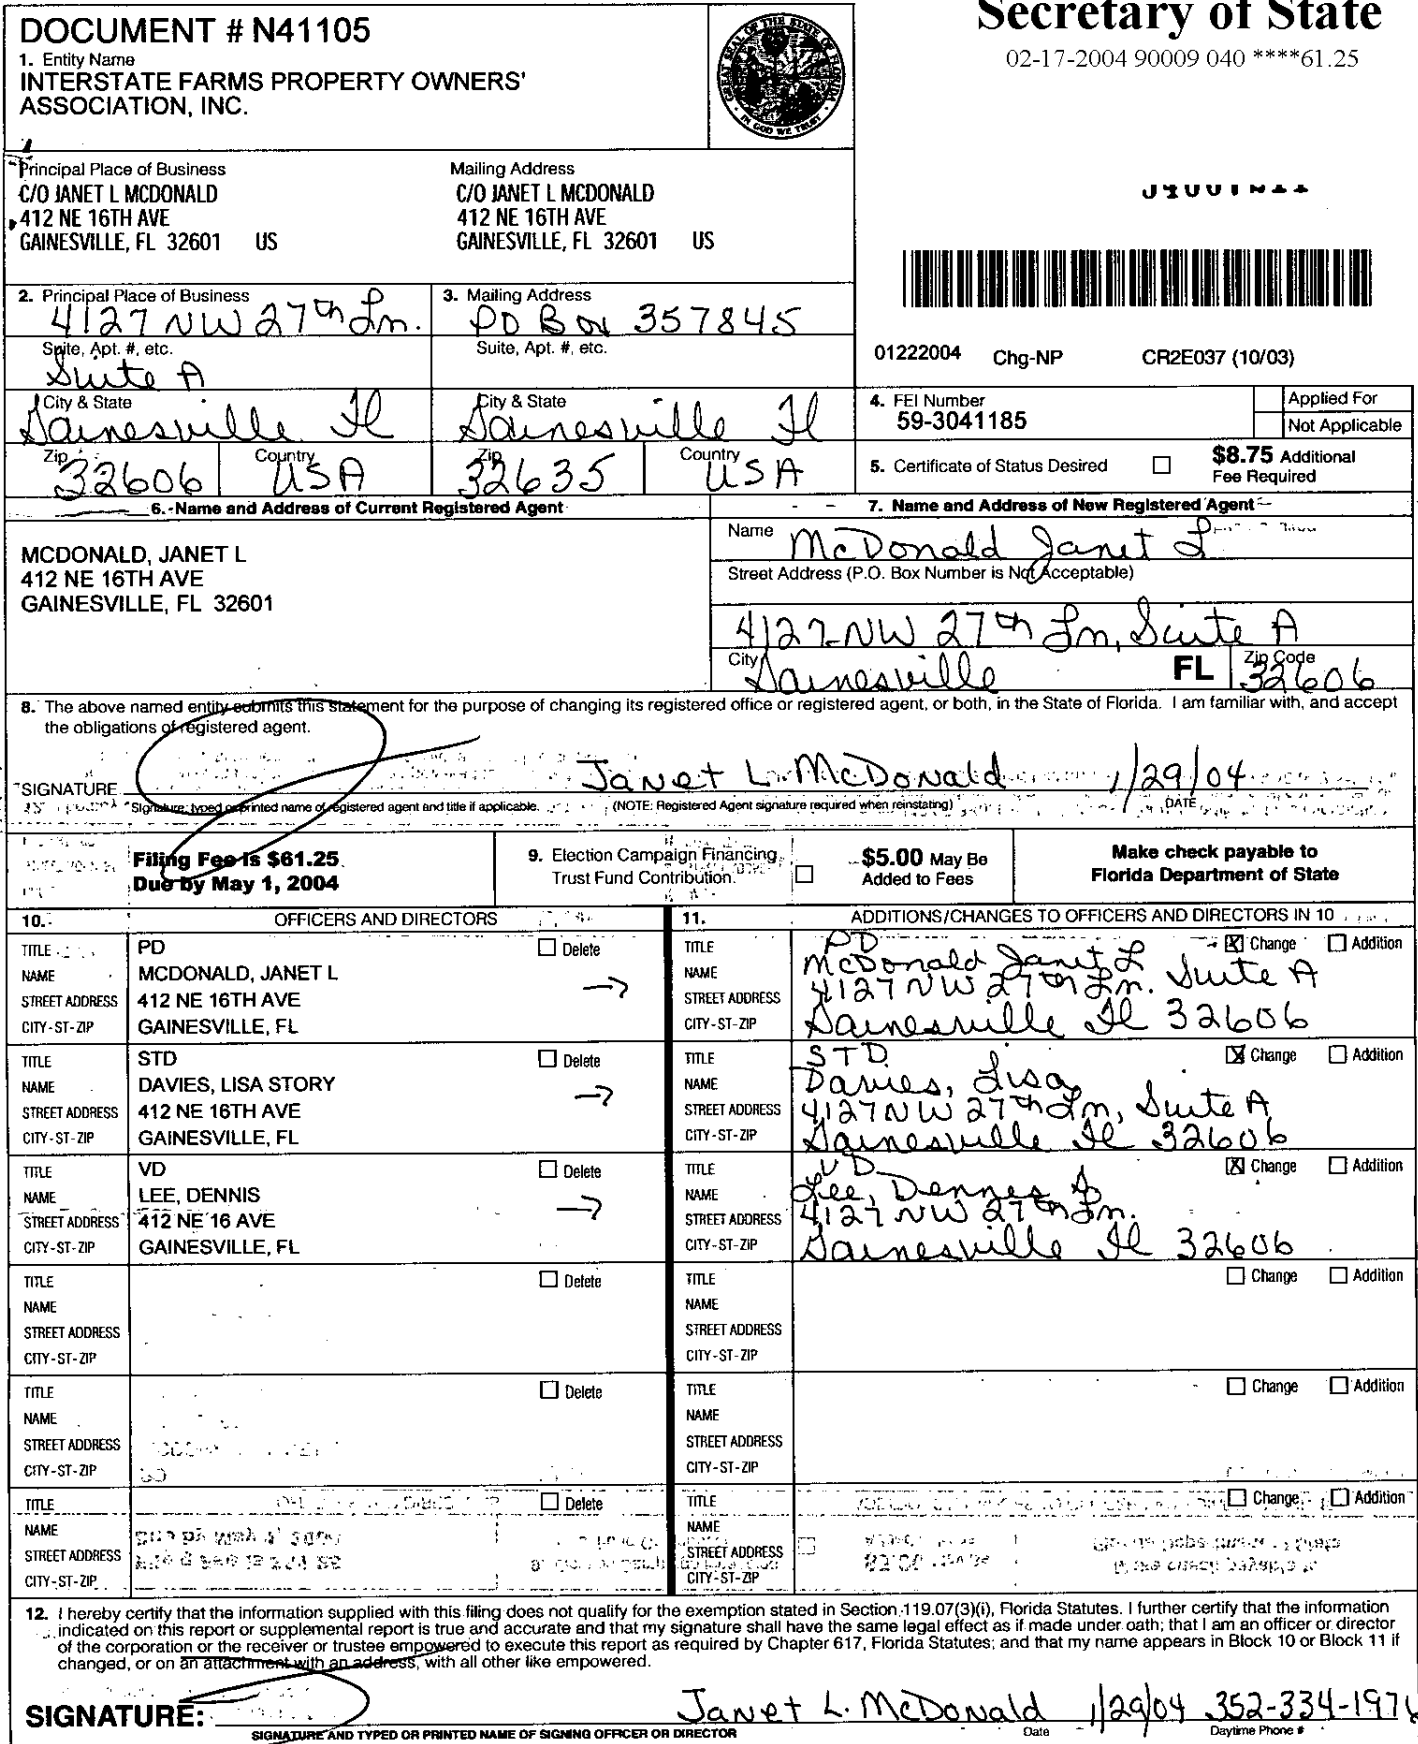 Secretary of State
02-17-2004 90009 040 ****61.25
DOCUMENT # N41105
1. Entity Name
INTERSTATE FARMS PROPERTY OWNERS'
ASSOCIATION, INC.
GREAT SEAL OF THE STATE OF FLORIDA
IN GOD WE TRUST
Principal Place of Business
C/O JANET L MCDONALD
412 NE 16TH AVE
GAINESVILLE, FL 32601 US
Mailing Address
C/O JANET L MCDONALD
412 NE 16TH AVE
GAINESVILLE, FL 32601 US
2. Principal Place of Business
4127 NW 27th Ln.
Suite, Apt. #, etc.
Suite A
City & State
Gainesville Fl
Zip
32606
Country
USA
3. Mailing Address
PO Box 357845
Suite, Apt. #, etc.
City & State
Gainesville Fl
Zip
32635
Country
USA
01222004 Chg-NP CR2E037 (10/03)
4. FEI Number
59-3041185
Applied For
Not Applicable
5. Certificate of Status Desired
$8.75 Additional
Fee Required
6. Name and Address of Current Registered Agent
MCDONALD, JANET L
412 NE 16TH AVE
GAINESVILLE, FL 32601
7. Name and Address of New Registered Agent
Name McDonald Janet L
Street Address (P.O. Box Number is Not Acceptable)
4127 NW 27th Ln, Suite A
City Gainesville FL Zip Code 32606
8. The above named entity submits this statement for the purpose of changing its registered office or registered agent, or both, in the State of Florida. I am familiar with, and accept
the obligations of registered agent.
SIGNATURE Janet L. McDonald 1/29/04
Signature, typed or printed name of registered agent and title if applicable. (NOTE: Registered Agent signature required when reinstating) DATE
Filing Fee is $61.25
Due by May 1, 2004
9. Election Campaign Financing
Trust Fund Contribution.
$5.00 May Be
Added to Fees
Make check payable to
Florida Department of State
10. OFFICERS AND DIRECTORS
11. ADDITIONS/CHANGES TO OFFICERS AND DIRECTORS IN 10
TITLE PD Delete
NAME MCDONALD, JANET L
STREET ADDRESS 412 NE 16TH AVE
CITY-ST-ZIP GAINESVILLE, FL
TITLE PD X Change Addition
NAME McDonald Janet L
STREET ADDRESS 4127 NW 27th Ln. Suite A
CITY-ST-ZIP Gainesville Fl 32606
TITLE STD Delete
NAME DAVIES, LISA STORY
STREET ADDRESS 412 NE 16TH AVE
CITY-ST-ZIP GAINESVILLE, FL
TITLE STD X Change Addition
NAME Davies, Lisa
STREET ADDRESS 4127 NW 27th Ln, Suite A
CITY-ST-ZIP Gainesville Fl 32606
TITLE VD Delete
NAME LEE, DENNIS
STREET ADDRESS 412 NE 16 AVE
CITY-ST-ZIP GAINESVILLE, FL
TITLE VD X Change Addition
NAME Lee, Dennes
STREET ADDRESS 4127 NW 27th Ln.
CITY-ST-ZIP Gainesville Fl 32606
TITLE Delete
NAME
STREET ADDRESS
CITY-ST-ZIP
TITLE Change Addition
NAME
STREET ADDRESS
CITY-ST-ZIP
TITLE Delete
NAME
STREET ADDRESS
CITY-ST-ZIP
TITLE Change Addition
NAME
STREET ADDRESS
CITY-ST-ZIP
TITLE Delete
NAME
STREET ADDRESS
CITY-ST-ZIP
TITLE Change Addition
NAME
STREET ADDRESS
CITY-ST-ZIP
12. I hereby certify that the information supplied with this filing does not qualify for the exemption stated in Section 119.07(3)(i), Florida Statutes. I further certify that the information
indicated on this report or supplemental report is true and accurate and that my signature shall have the same legal effect as if made under oath; that I am an officer or director
of the corporation or the receiver or trustee empowered to execute this report as required by Chapter 617, Florida Statutes; and that my name appears in Block 10 or Block 11 if
changed, or on an attachment with an address, with all other like empowered.
SIGNATURE: Janet L. McDonald 1/29/04 352-334-1976
SIGNATURE AND TYPED OR PRINTED NAME OF SIGNING OFFICER OR DIRECTOR Date Daytime Phone #